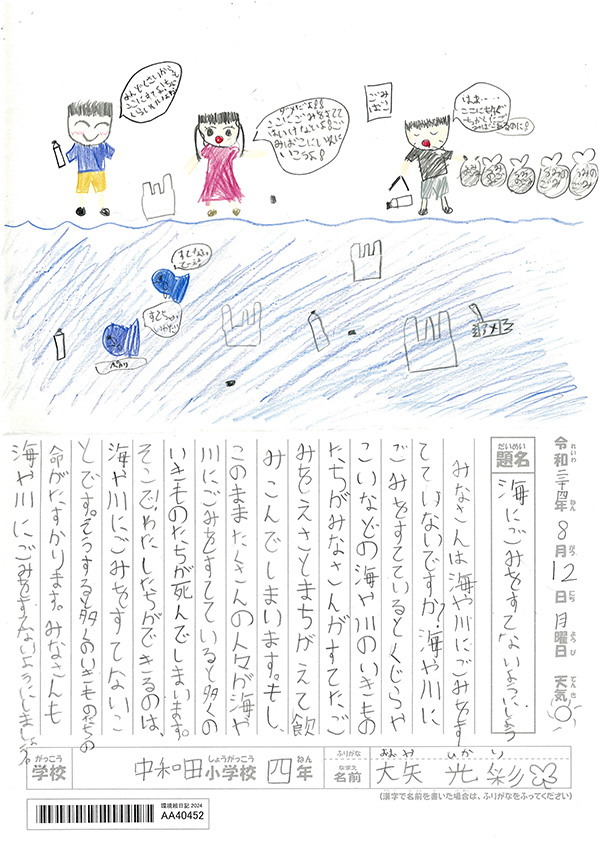 めんどくさいから
ダメだよ!!
ここにごみをすてて
はいけないよ!!ご
みばこにいれに
いこうよ!!
ごみ
ばこ
はぁ……
ここに
みばこあるのに!
うみの
ごみ
うみの
ごみ
アメ
令和二十四年8月12日月曜日 天気○
れいわ ねん がつ にち ようび てんき
だいめい
題名 海にごみをすてないようにしよう
みなさんは海や川にごみをす
てていないですか?海や川に
ごみをすてているとくじらや
こいなどの海や川のいきもの
たちがみなさんがすてたご
みをえさとまちがえて飲
みこんでしまいます。もし、
このままたくさんの人々が海や
川にごみをすてていると多くの
いきものたちが死んでしまいます。
そこで、わたしたちができるのは、
海や川にごみをすてないこ
とです。そうすると多くのいきものたちの
命がたすかります。みなさんも
海や川にごみをすてないようにしましょう。
がっこう しょうがっこう ねん
学校 中和田小学校 四年
ふりがな おおや ひかり
なまえ
名前 大矢 光彩
(漢字で名前を書いた場合は、ふりがなをふってください)
環境絵日記 2024
AA40452